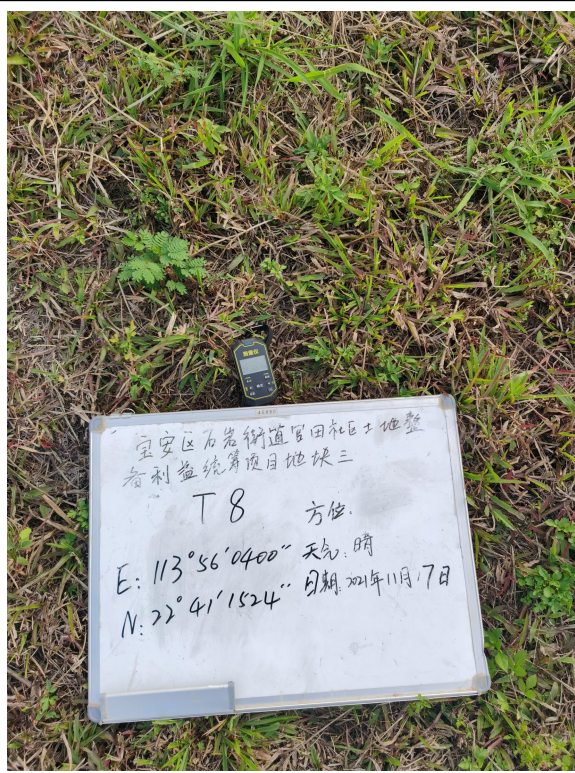 测亩仪
宝安区石岩街道官田社区土地整
备利益统筹项目地块三
T8
方位:
E: 113°56′0400″
天气: 晴
N: 22°41′1524″
日期: 2021年11月17日